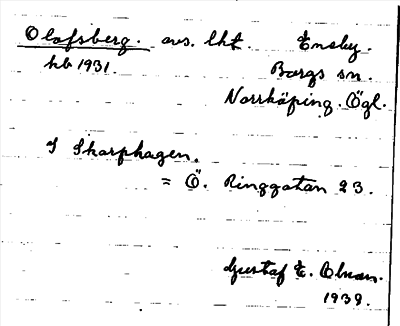 Olofsberg. avs. lht. Ensby.
kb 1931. Borgs sn.
Norrköping. Ögl.
I Skarphagen.
= Ö. Ringgatan 23.
Gustaf E. Ohman.
1939.